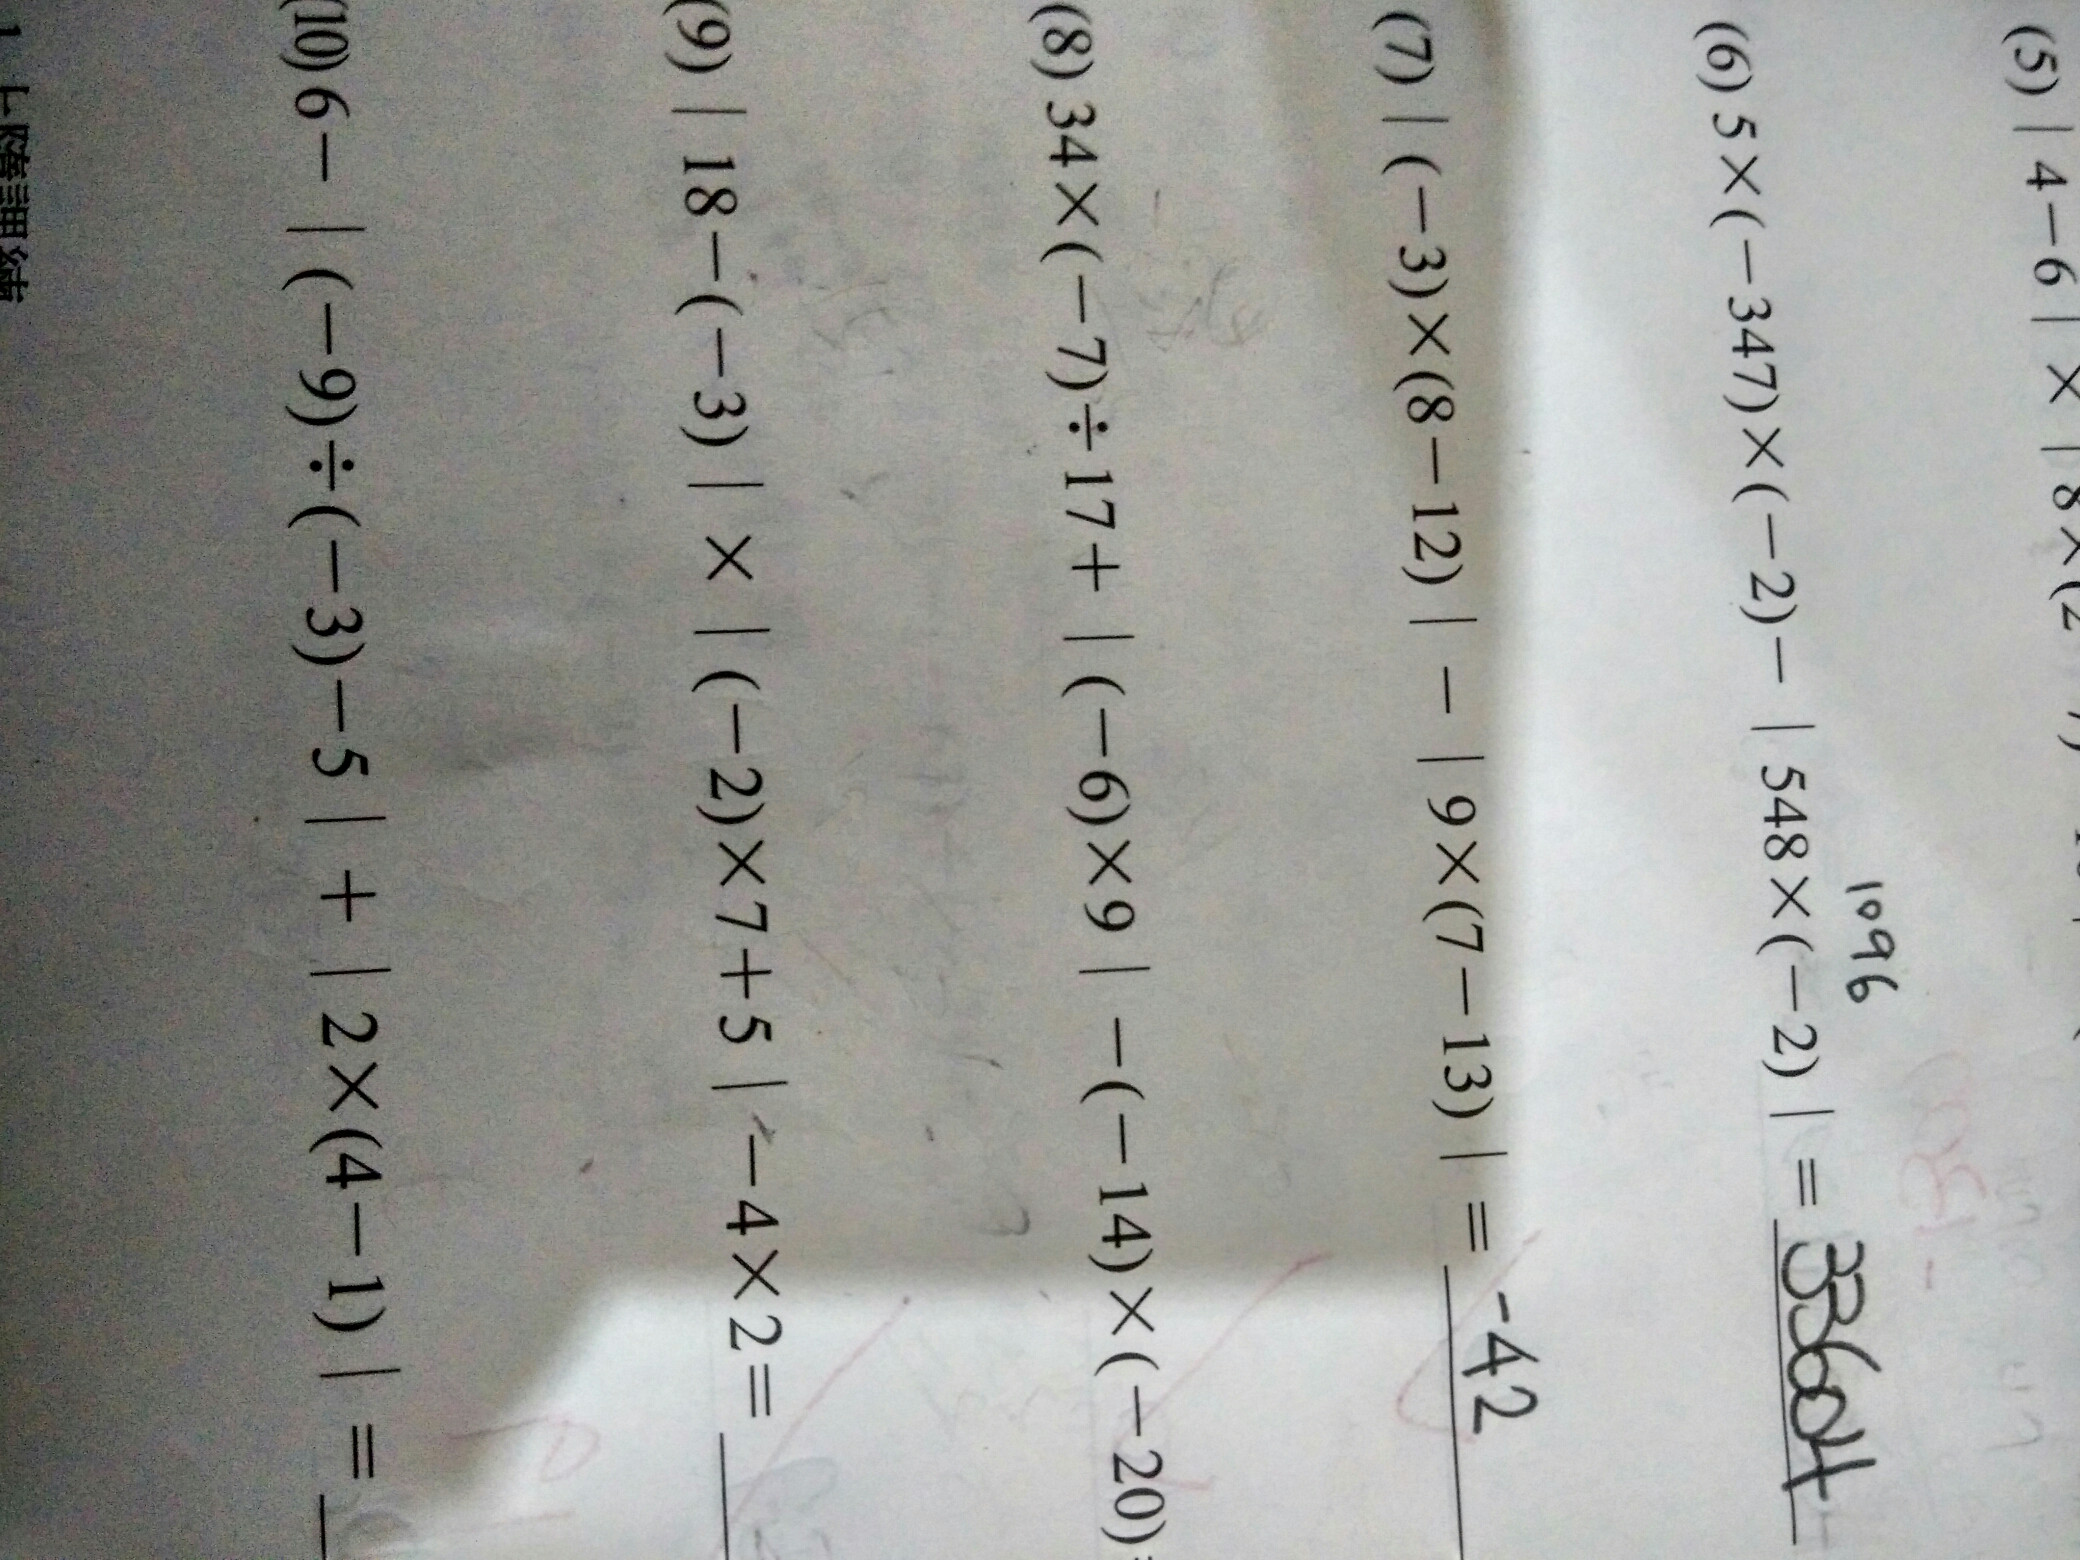 (5) | 4-6 | × | 8×(2
(6) 5×(-347)×(-2)- | 548×(-2) | =
1096
(7) | (-3)×(8-12) | - | 9×(7-13) | = -42
(8) 34×(-7)÷17+ | (-6)×9 | -(-14)×(-20)
(9) | 18-(-3) | × | (-2)×7+5 | -4×2=
(10) 6- | (-9)÷(-3)-5 | + | 2×(4-1) | =